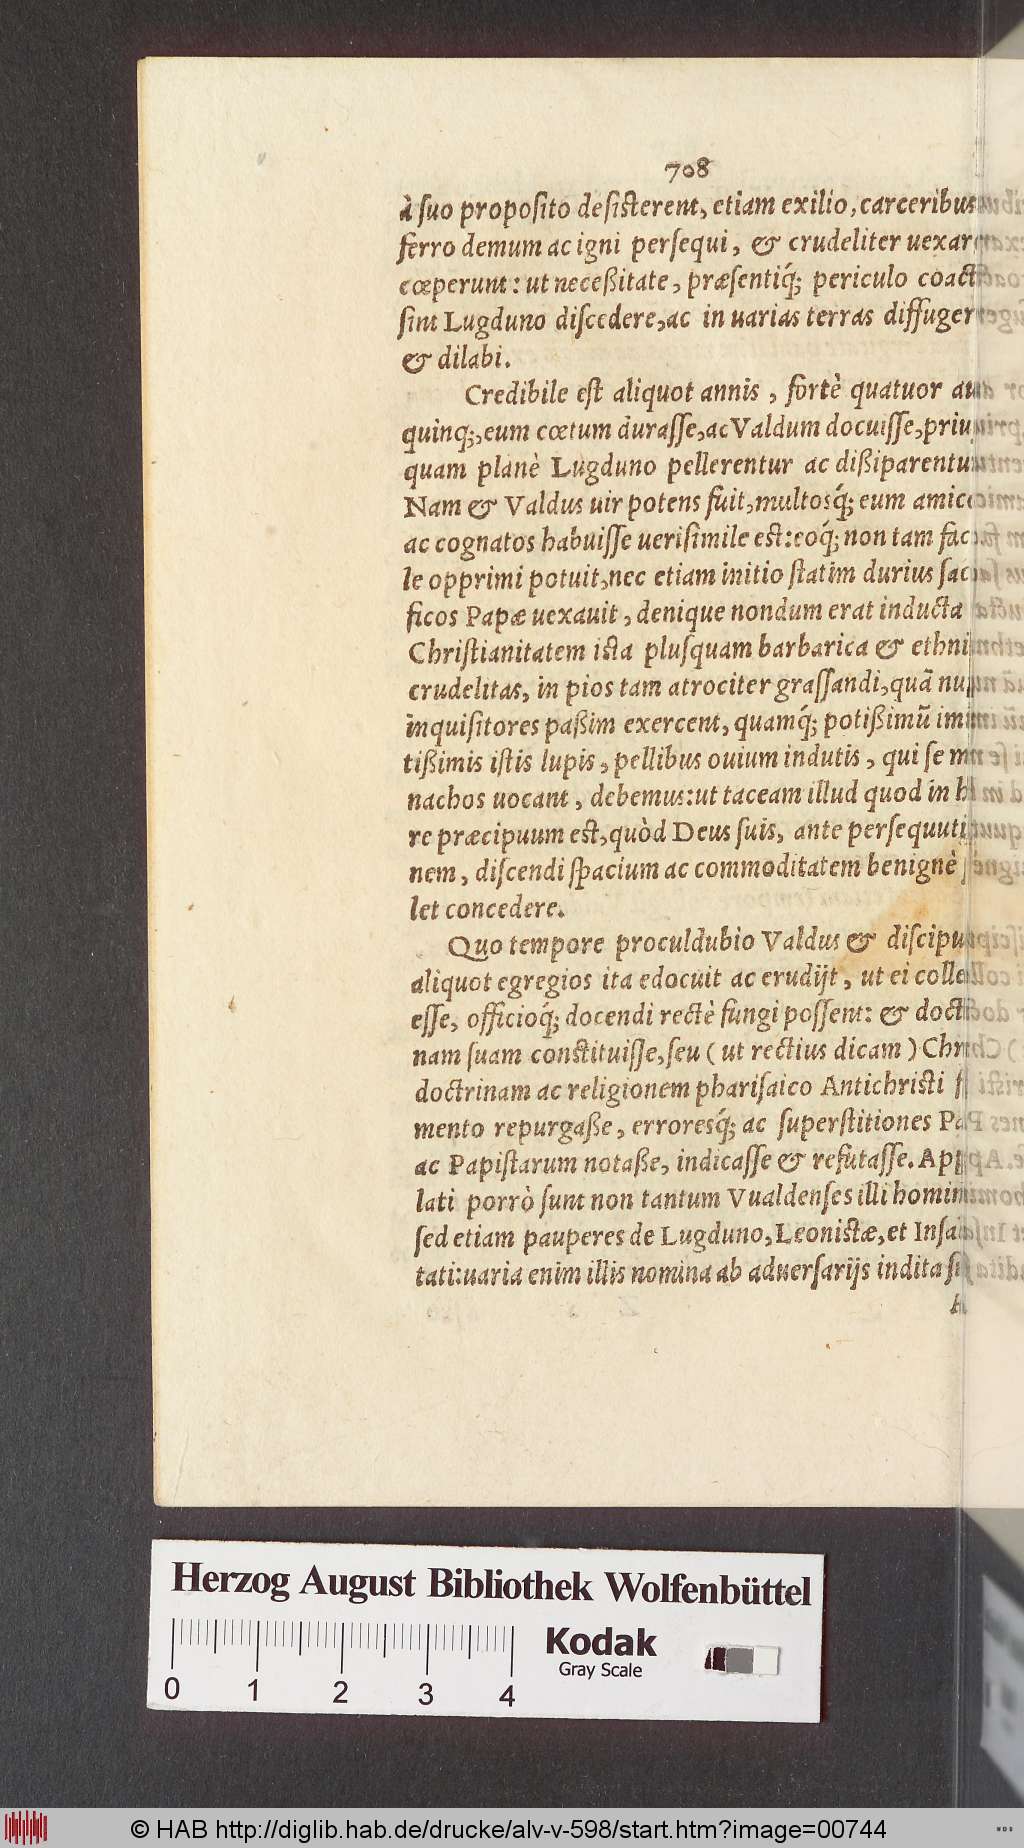 708
à ſuo propoſito deſiſterent, etiam exilio, carceribus
ferro demum ac igni perſequi, & crudeliter uexar
cœperunt: ut neceßitate, præſentiq́; periculo coacti
ſint Lugduno diſcedere, ac in uarias terras diffuger
& dilabi.
Credibile eſt aliquot annis, fortè quatuor au
quinq;, eum cœtum duraſſe, ac Valdum docuiſſe, priu
quam planè Lugduno pellerentur ac dißiparentu
Nam & Valdus uir potens fuit, multosq́; eum amico
ac cognatos habuiſſe ueriſimile eſt: eoq́; non tam fac
le opprimi potuit, nec etiam initio ſtatim durius ſac
ficos Papæ uexauit, denique nondum erat inducta
Chriſtianitatem iſta pluſquam barbarica & ethni
crudelitas, in pios tam atrociter graſſandi, quā nu
inquiſitores paßim exercent, quamq́; potißimū im
tißimis iſtis lupis, pellibus ouium indutis, qui ſe m
nachos uocant, debemus: ut taceam illud quod in h
re præcipuum eſt, quòd Deus ſuis, ante perſequuti
nem, diſcendi ſpacium ac commoditatem benignè ſ
let concedere.
Quo tempore proculdubio Valdus & diſcipu
aliquot egregios ita edocuit ac erudijt, ut ei colle
eſſe, officioq́; docendi rectè fungi poſſent: & doct
nam ſuam conſtituiſſe, ſeu ( ut rectius dicam ) Chri
doctrinam ac religionem phariſaico Antichriſti f
mento repurgaße, erroresq́; ac ſuperſtitiones Pa
ac Papiſtarum notaße, indicaſſe & refutaſſe. App
lati porrò ſunt non tantum Vualdenſes illi homin
ſed etiam pauperes de Lugduno, Leoniſtæ, et Inſa
tati: uaria enim illis nomina ab aduerſarijs indita ſu
Herzog August Bibliothek Wolfenbüttel
Kodak
Gray Scale
0 1 2 3 4
© HAB http://diglib.hab.de/drucke/alv-v-598/start.htm?image=00744